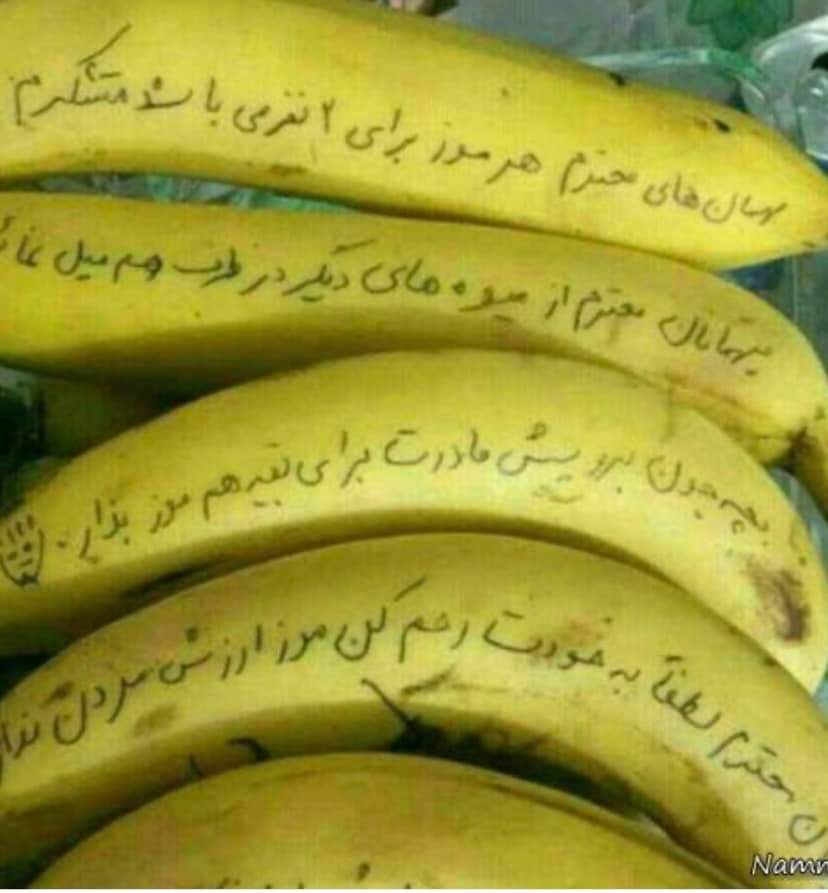 مهمان‌های محترم هر موز برای ۲ نفر می باشد متشکرم
میهمانان محترم از میوه های دیگر در ظرف هم میل
بچه جون برو پیش مادرت برای بقیه هم موز بذار.
محترم لطفاً به خودت رحم کن موز ارزش مردن
Namn